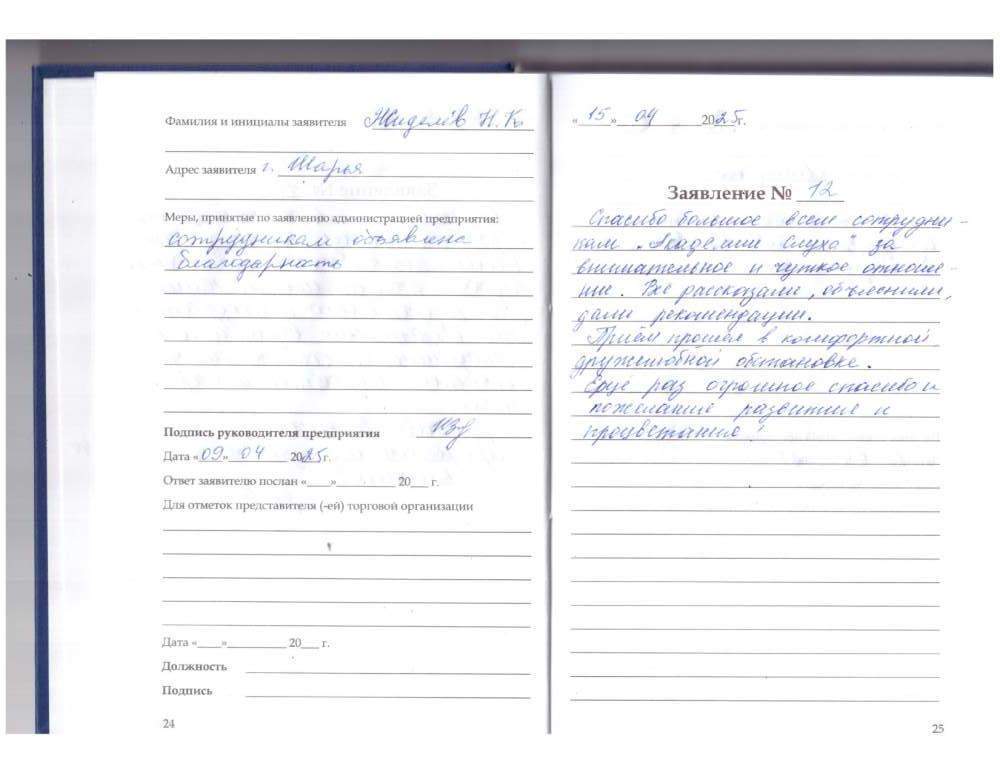 Фамилия и инициалы заявителя Жиделёв Н. К.
Адрес заявителя г. Шарья
Меры, принятые по заявлению администрацией предприятия:
сотрудникам объявлена
благодарность
Подпись руководителя предприятия
Дата «09» 04 2025г.
Ответ заявителю послан «____»__________ 20___ г.
Для отметок представителя (-ей) торговой организации
Дата «____»__________ 20___ г.
Должность
Подпись
24
«15» 04 2025г.
Заявление № 12
Спасибо большое всем сотрудни-
кам „Академии слуха" за
внимательное и чуткое отноше-
ние. Все рассказали, объяснили,
дали рекомендации.
Приём прошел в комфортной
дружелюбной обстановке.
Еще раз огромное спасибо и
пожелание развития и
процветания!
25